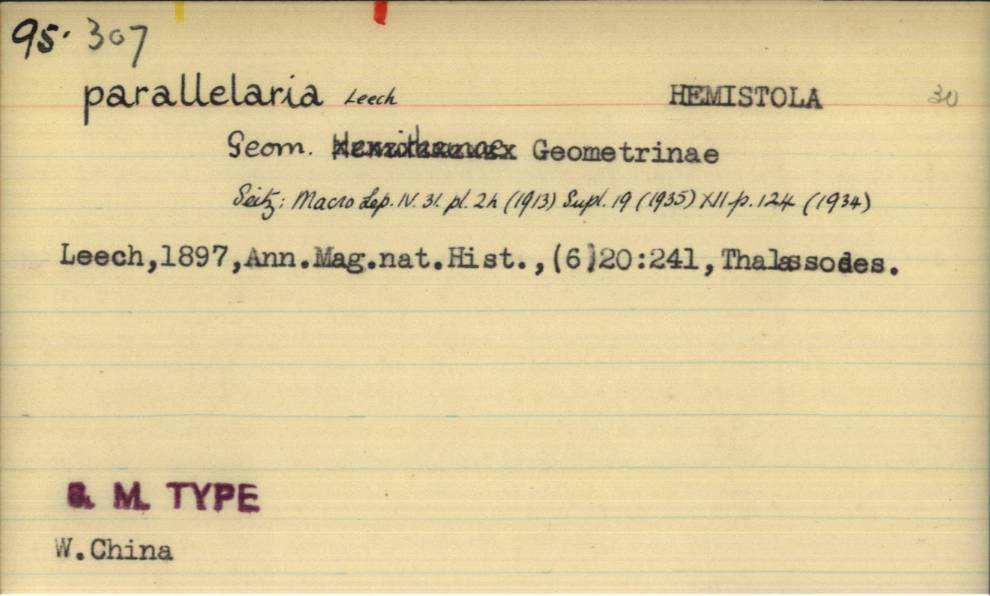 95. 307
parallelaria Leech HEMISTOLA 30
Geom. Geometrinae
Seitz: Macro Lep. IV. 31. pl. 2h (1913) Supl. 19 (1935) XII p. 124 (1934)
Leech,1897,Ann.Mag.nat.Hist.,(6)20:241,Thalassodes.
B. M. TYPE
W.China